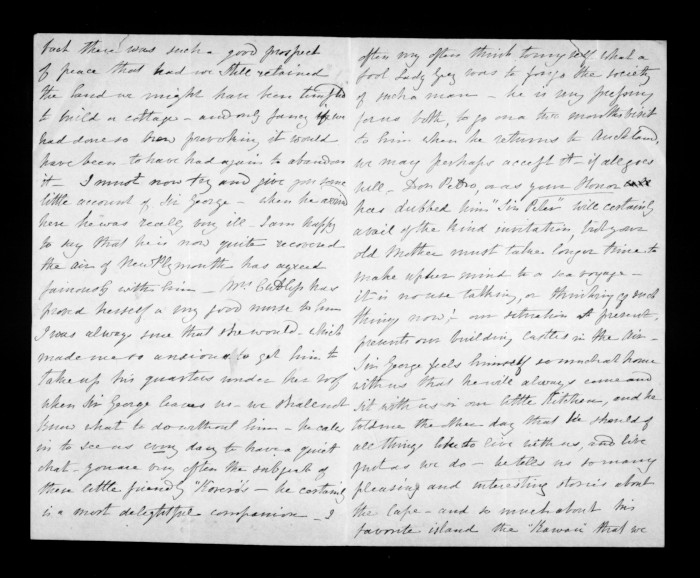 fact there was such a good prospect
of peace that had we still retained
the land we might have been tempted
to build a cottage - and only fancy if we
had done so how provoking it would
have been to have had again to abandon
it - I must now try and give you some
little account of Sir George - when he arrived
here he was really very ill - I am happy
to say that he is now quite recovered
the air of New Plymouth has agreed
famously with him - Mrs Cutliss has
proved herself a very good nurse to him
I was always sure that she would - which
made me so anxious to get him to
take up his quarters under her roof
when Sir George leaves us - we shall not
know what to do without him - he calls
in to see us every day to have a quiet
chat - you are very often the subject of
these little friendly "Korero's - he certainly
is a most delightful companion - I
often very often think to myself what a
fool Lady Grey was to forgo the society
of such a man - he is very pressing
for us both, to go on a two months visit
to him when he returns to Auckland,
we may perhaps accept it - if all goes
well - Don Pedro, or as your Honor
has dubbed him "Sir Peter" will certainly
avail of the kind invitation, but your
old Mother must take longer time to
make up her mind to a sea voyage -
it is no use talking, or thinking of such
things now, - our situation at present,
prevents our building castles in the air -
Sir George feels himself so much at home
with us that he will always come and
sit with us in our little Kitchen, and he
told me the other day that he should of
all things like to live with us, and live
just as we do - he tells us so many
pleasing and interesting stories about
the Cape - and so much about his
favorite island the "Kawau" that we